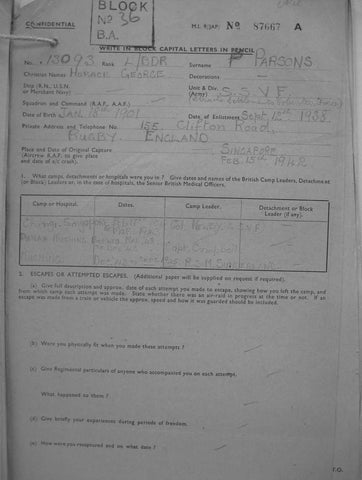 BLOCK
Nº 36
B.A.
CONFIDENTIAL
M.I. 9/JAP/ Nº 87667 A
WRITE IN BLOCK CAPITAL LETTERS IN PENCIL
No. 13093 L/BDR Surname PARSONS
Christian Names HORACE GEORGE Decorations
Ship (R.N., U.S.N. or Merchant Navy) Unit & Div. (Army) S.S.V.F.
Squadron and Command (R.A.F., A.A.F.)
Date of Birth JAN 18th 1901 Date of Enlistment Sept 12th 1938
Private Address and Telephone No. 155 Clifton Road,
RUGBY. ENGLAND
Place and Date of Original Capture SINGAPORE
(Aircrew R.A.F. to give place and date of a/c crash). FEB 15th 1942
1. What camps, detachments or hospitals were you in? Give dates and names of the British Camp Leaders, Detachment
(or Block) Leaders or, in the case of hospitals, the Senior British Medical Officers.
Camp or Hospital. Dates. Camp Leader. Detachment or Block Leader (if any).
Changi. Singapore Col. Newey. S.S.V.F.
Capt.
2. ESCAPES OR ATTEMPTED ESCAPES. (Additional paper will be supplied on request if required).
(a) Give full description and approx. date of each attempt you made to escape, showing how you left the camp, and
from which camp each attempt was made. State whether there was an air-raid in progress at the time or not. If an
escape was made from a train or vehicle the approx. speed and how it was guarded should be included.
(b) Were you physically fit when you made these attempts?
(c) Give Regimental particulars of anyone who accompanied you on each attempt.
What happened to them?
(d) Give briefly your experiences during periods of freedom.
(e) How were you recaptured and on what date?
T.O.